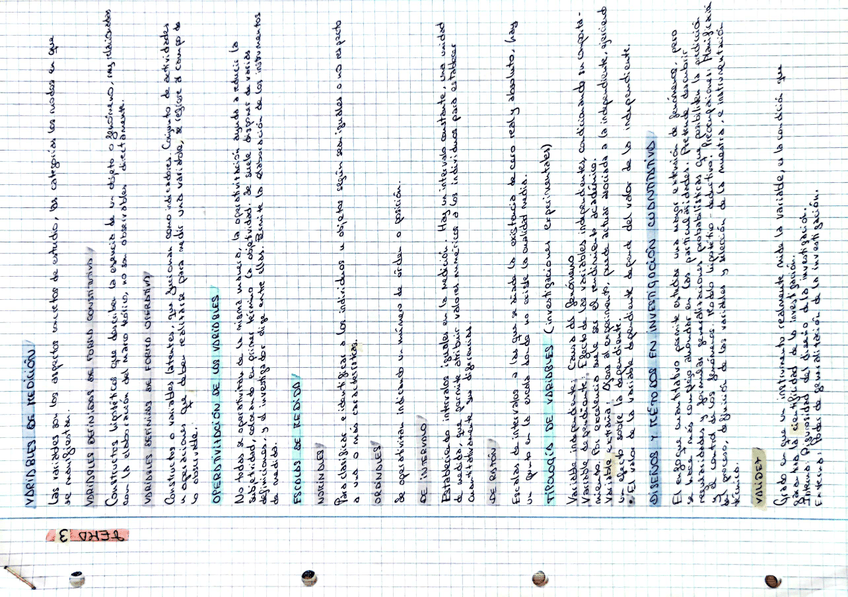 TEMA 3
VARIABLES DE MEDICIÓN
Las variables son los aspectos concretos de estudio, las categorías los modos en que
se manifiestan.
VARIABLES DEFINIDAS DE FORMA CONSTITUTIVA
Constructos hipotéticos que describen la esencia de un objeto o fenómeno, muy relacionados
con la elaboración del marco teórico, no son observables directamente.
VARIABLES DEFINIDAS DE FORMA OPERATIVA
Constructos o variables latentes, que funcionan como indicadores. Conjunto de actividades
u operaciones que deben realizarse para medir una variable, se refiere al campo de
lo observable.
OPERATIVIZACIÓN DE LAS VARIABLES
No todas se operativizan de la misma manera, la operativización ayuda a reducir la
subjetividad, valorando en primer término la objetividad. Se suele disponer de varias
definiciones y el investigador elige entre ellas. Permite la elaboración de los instrumentos
de medida.
ESCALAS DE MEDIDA
NOMINALES
Para clasificar e identificar a los individuos u objetos según sean iguales o no respecto
a una o más características.
ORDINALES
Se operativizan indicando un número de orden o posición.
DE INTERVALO
Establecen intervalos iguales en la medición. Hay un intervalo constante, una unidad
de medida que permite atribuir valores numéricos a los individuos para establecer
cuantitativamente sus diferencias.
DE RAZÓN
Escalas de intervalos a las que se añade la existencia de cero real y absoluto, hay
un punto en la escala donde no existe la cualidad medida.
TIPOLOGÍA DE VARIABLES (investigaciones experimentales)
Variable independiente: Causa del fenómeno
Variable dependiente: Efecto de las variables independientes, condicionando su comporta-
miento. Por excelencia suele ser el rendimiento académico.
Variable extraña: Ajena al experimento, puede actuar asociada a la independiente, ejerciendo
un efecto sobre la dependiente.
• El valor de la variable dependiente depende del valor de la independiente.
DISEÑOS Y MÉTODOS EN INVESTIGACIÓN CUANTITATIVA
El enfoque cuantitativo permite estudiar una mayor extensión de fenómenos, pero
se hace más complejo ahondar en las particularidades. Pretende descubrir
regularidades y formular generalizaciones probabilísticas que posibiliten la predicción
y el control de los fenómenos. Modelo hipotético-deductivo. Preocupaciones: Planificación
del proceso, definición de las variables y selección de la muestra, e instrumentación
técnica.
VALIDEZ
Grado en que un instrumento realmente mide la variable, es la condición que
garantiza la cientificidad de la investigación.
Interna: Rigurosidad del diseño de la investigación.
Externa: Poder de generalización de la investigación.